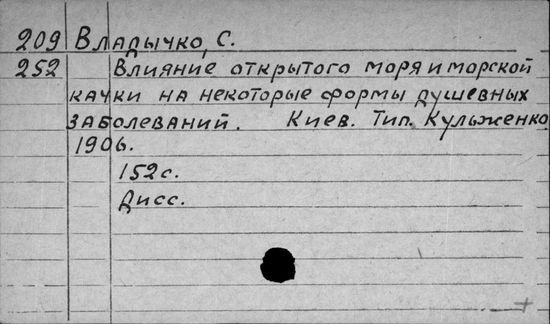 209 Владычко, С.
252 Влияние открытого моря и морской
качки на некоторые формы душевных
заболеваний. Киев. Тип. Кульженко
1906.
152с.
Дисс.
+